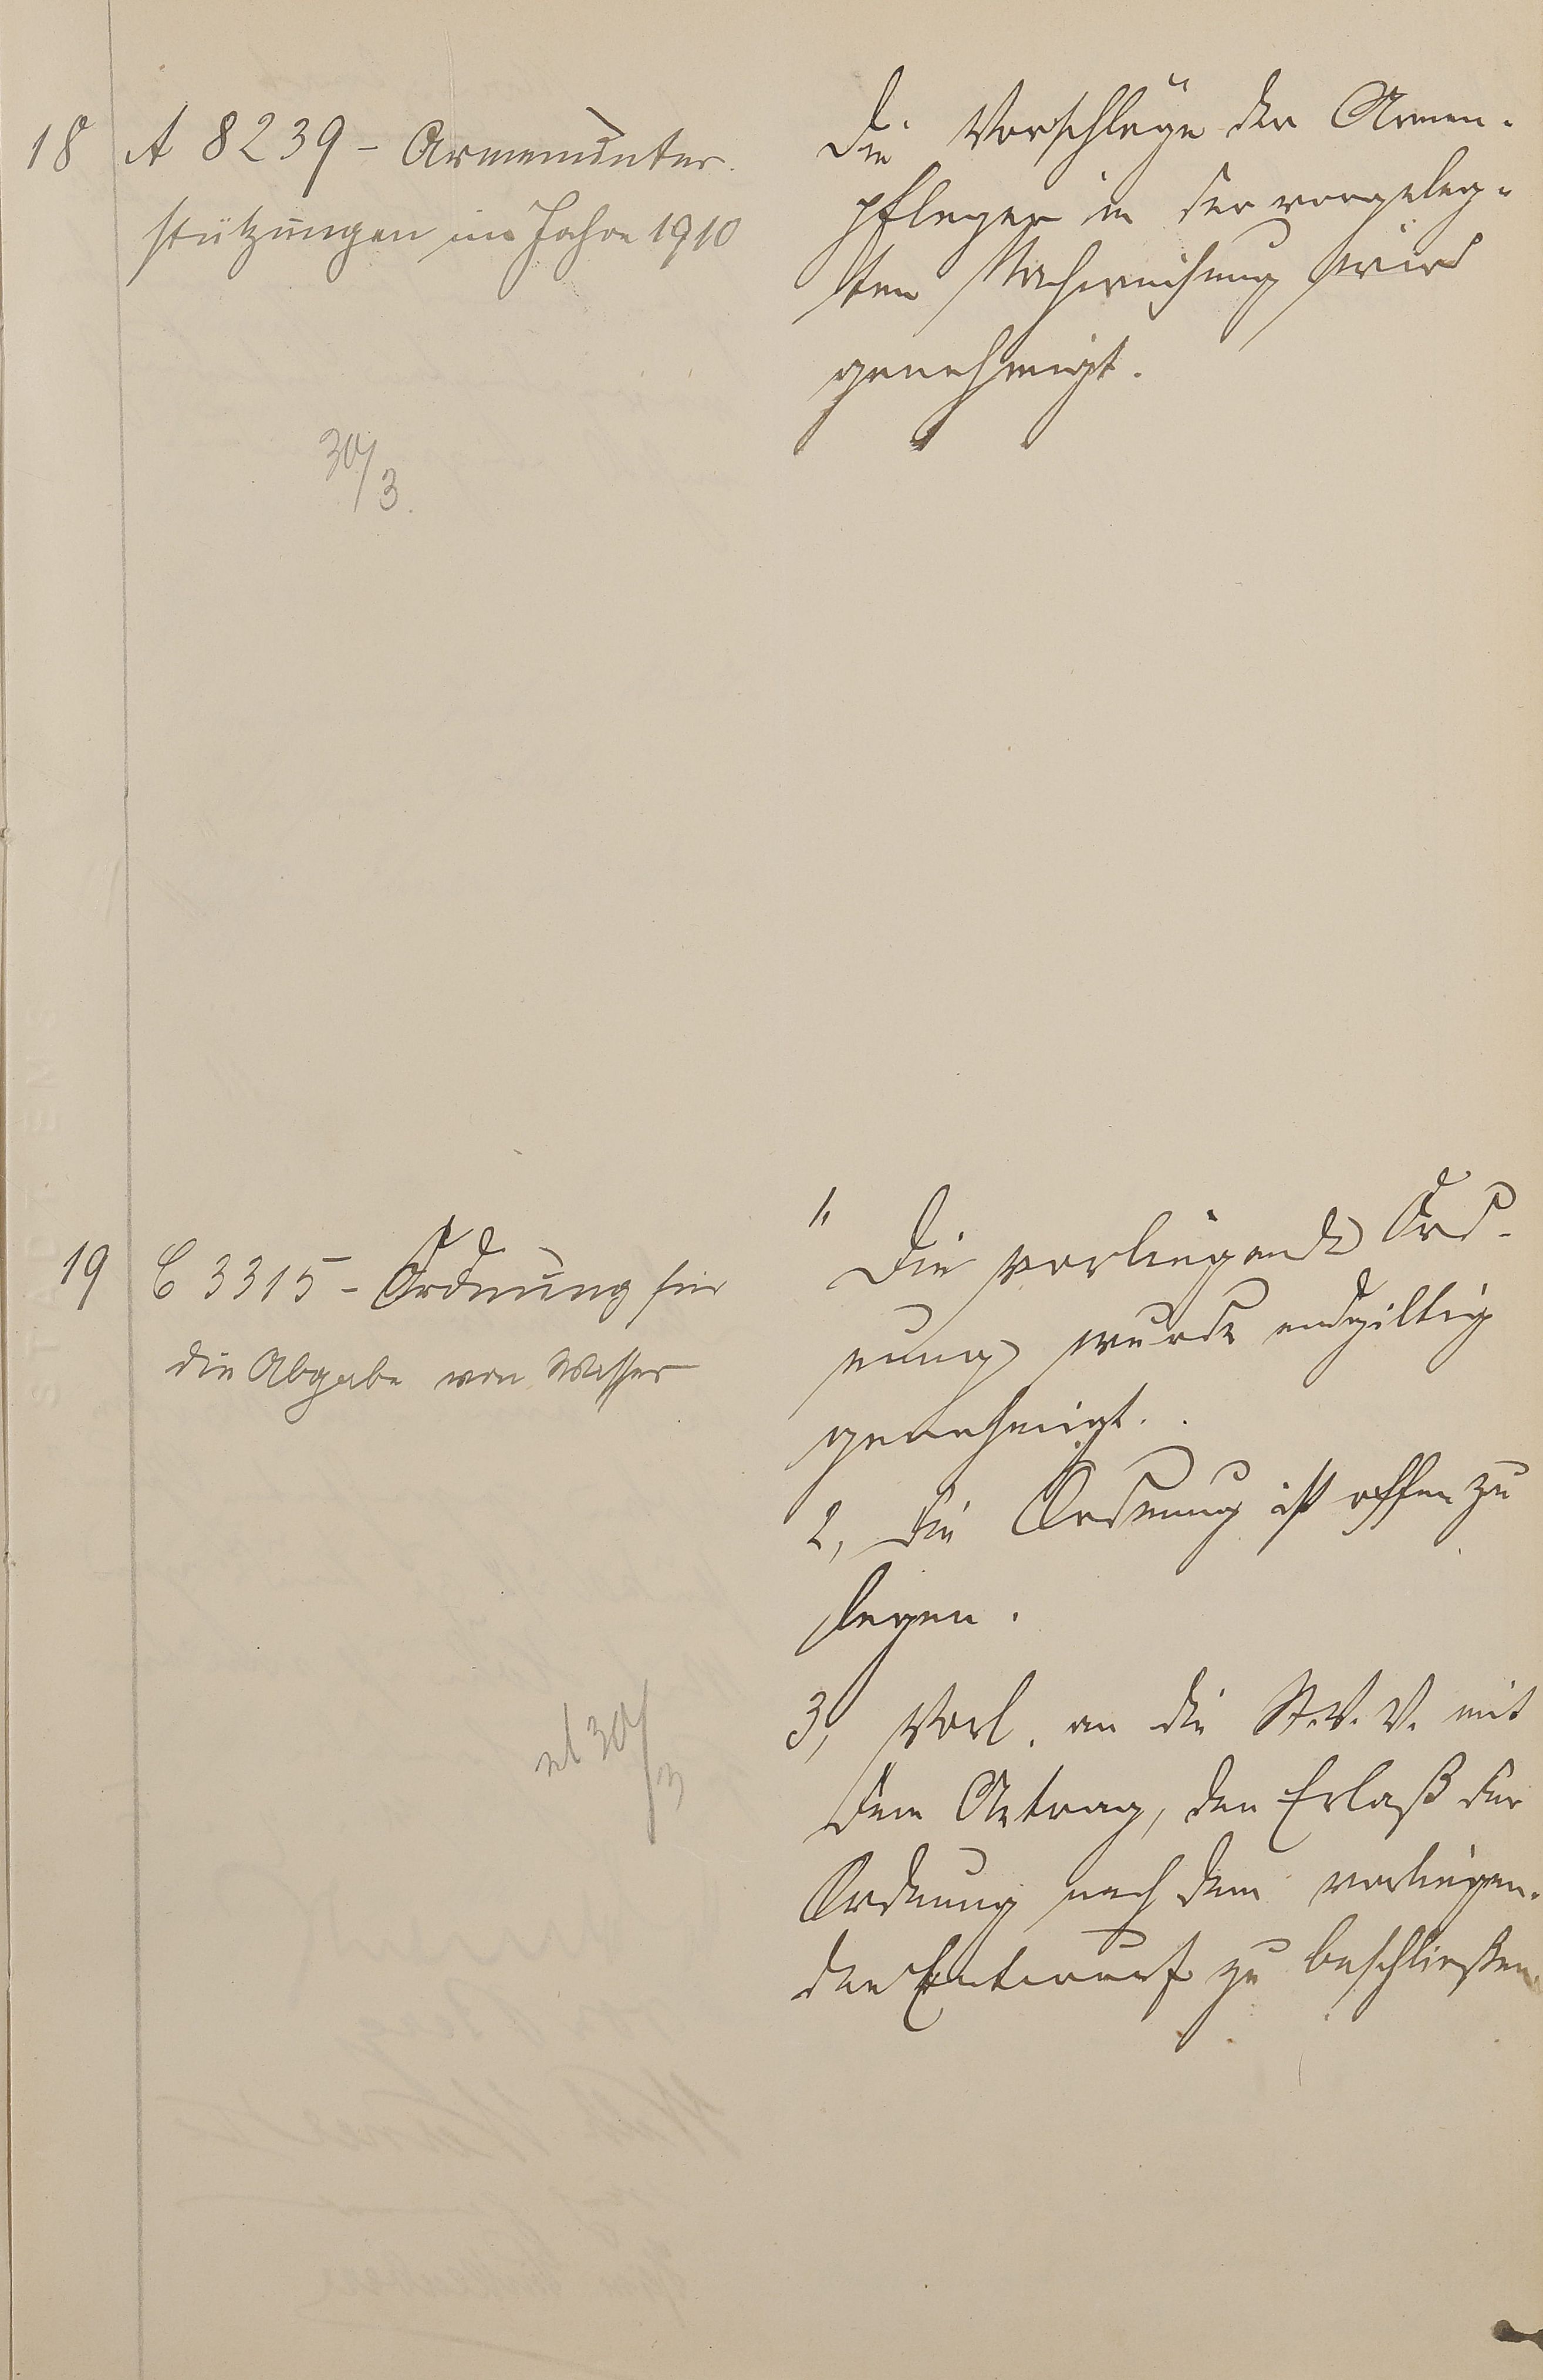 18 A 8239 - Armenunter-
stützungen im Jahre 1910
Die Vorschläge der Armen-
pfleger in der vorgeleg-
ten Nachweisung wird
genehmigt.
30/3.
19 C 3315 - Ordnung für
die Abgabe von Wasser
1, Die vorliegende Ord-
nung wurde endgiltig
genehmigt.
2, Die Ordnung ist offen zu
legen.
3, Vorl. an die St.V.V. mit
dem Antrag, den Erlaß der
Ordnung nach dem vorliegen-
den Entwurf zu beschließen
30/3